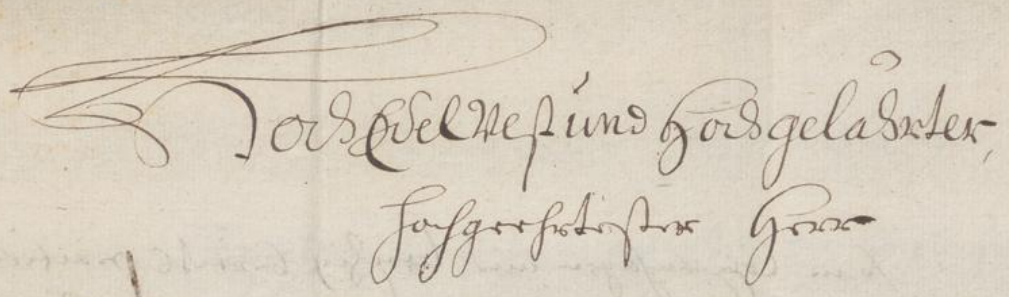 HochEdelVest und Hochgelahrter,
hochgeehrtester Herr